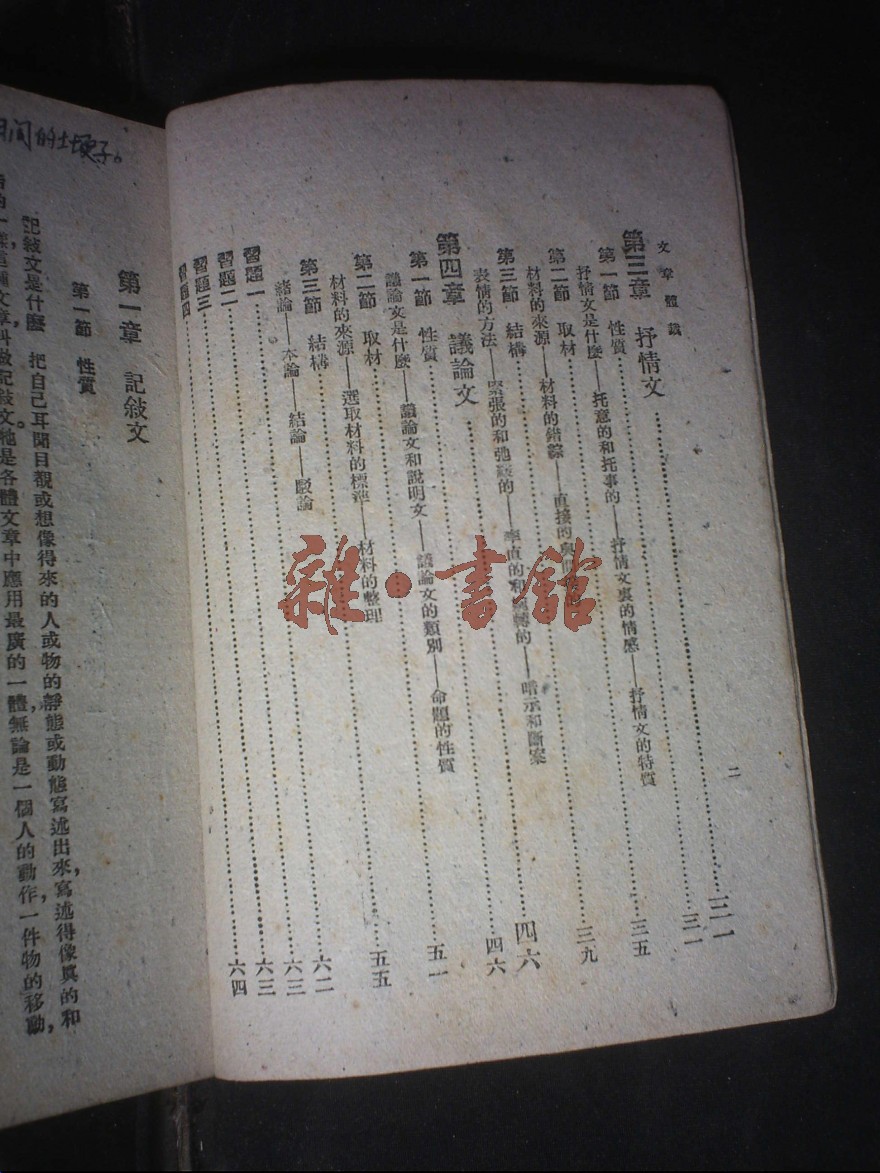 文章體裁
二
第三章 抒情文……三一
第一節 性質……三一
抒情文是什麼——托意的和托事的——抒情文裏的情感——抒情文的特質
第二節 取材……三五
材料的來源——材料的錯綜——直接的與間接的
第三節 結構……三九
表情的方法——緊張的和弛緩的——率直的和婉轉的——暗示和斷案
第四章 議論文……四六
第一節 性質……四六
議論文是什麼——議論文和說明文——議論文的類別——命題的性質
第二節 取材……五一
材料的來源——選取材料的標準——材料的整理
第三節 結構……五五
緒論——本論——結論——駁論
習題一……六二
習題二……六三
習題三……六三
習題四……六四
間的土埂子。
第一章 記敍文
第一節 性質
記敍文是什麼 把自己耳聞目覩或想像得來的人或物的靜態或動態寫述出來，寫述得像眞的和
的一樣，這種文章叫做記敍文。牠是各體文章中應用最廣的一體，無論是一個人的動作，一件物的移動，
雜·書館